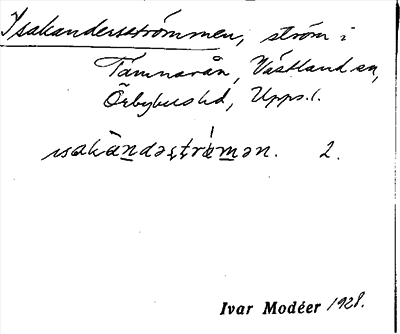 Isakandersströmmen, ström i
Tämnarån, Västland sn,
Örbyhus hd, Upps. l.
ısakàndəstrǿmən. 2.
Ivar Modéer 1928.